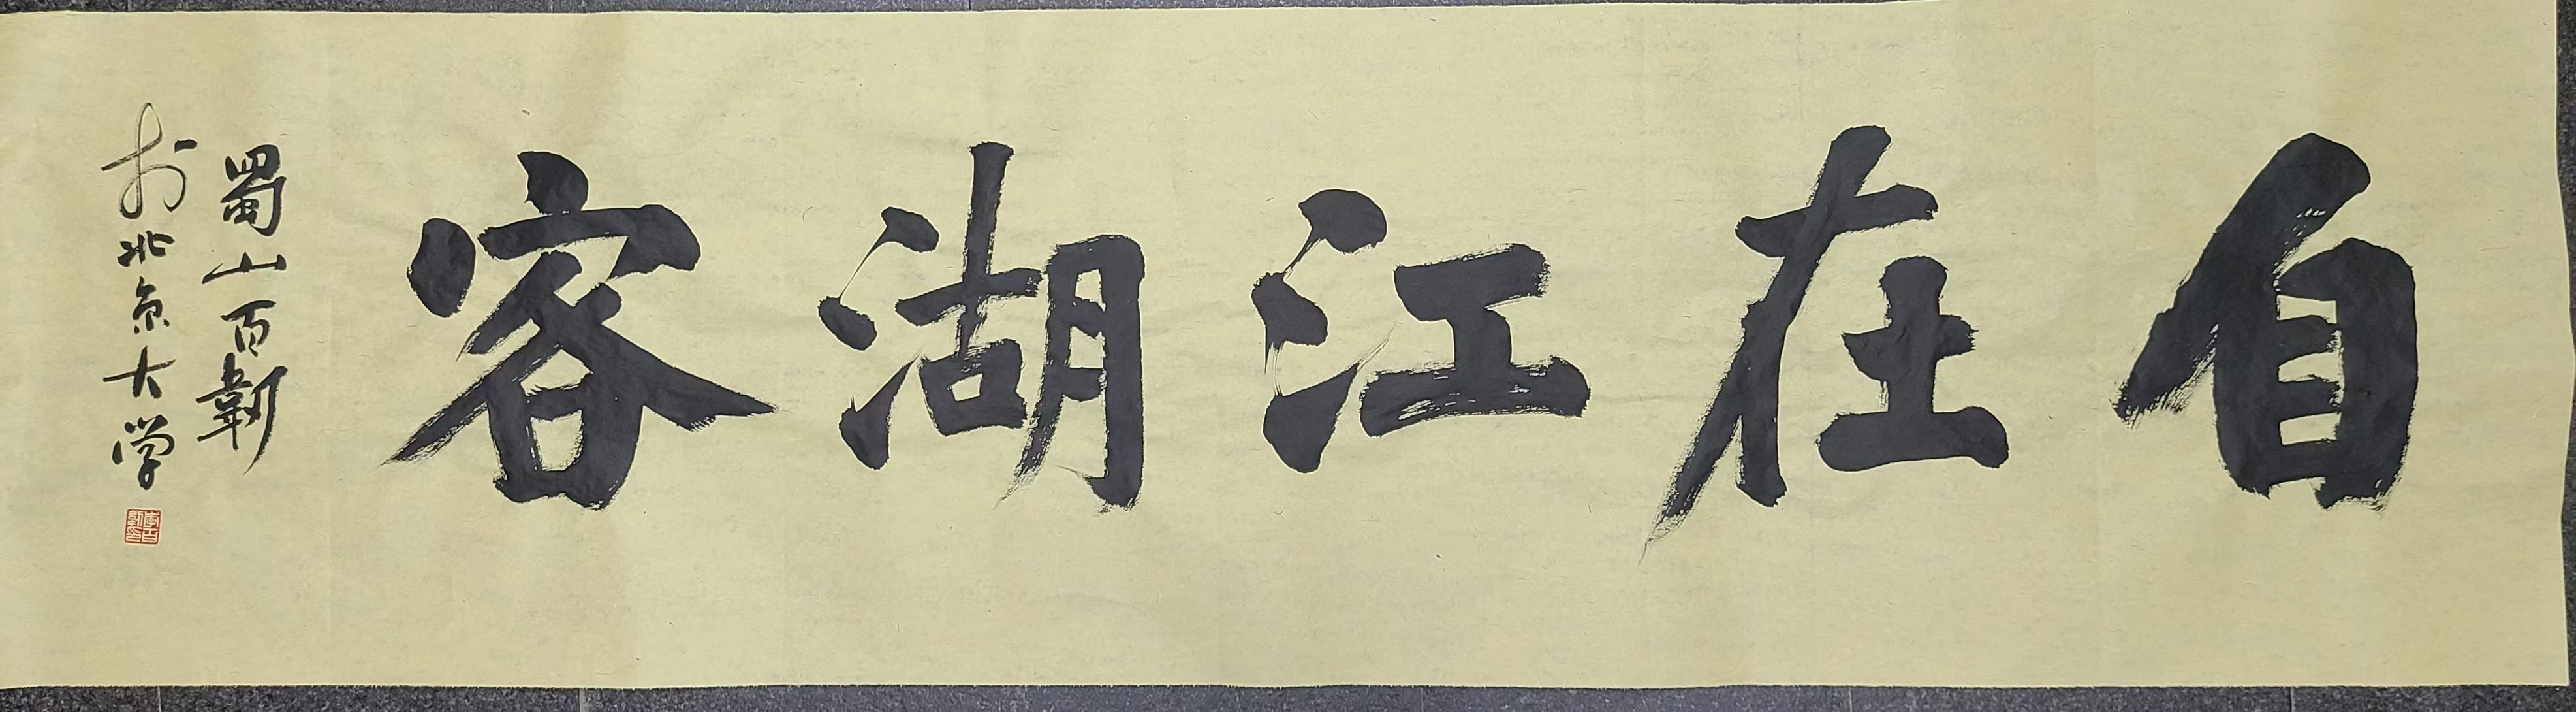 自在江湖客
蜀山百韌
於北京大学